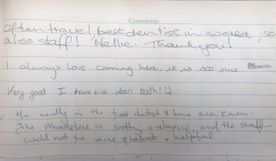 Comments
often travel, best dentist in world, so
also staff! Nellie. Thank you!
I always love coming here, it is so nice
Very good I have clean teeth!
He really is the best dentist I have ever known.
The atmosphere is and the staff
could not be more helpful